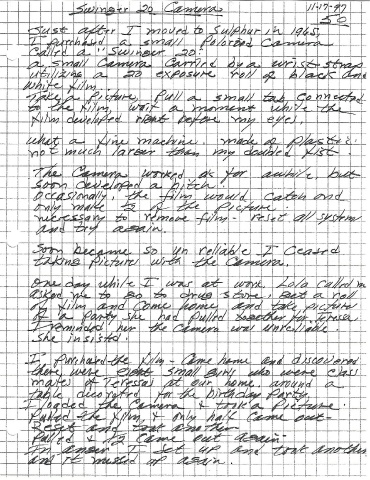 Swinger 20 Camera
11-17-97
50
Just after I moved to Sulphur in 1965,
I purchased a small Polaroid Camera
called a "Swinger 20."
a small Camera carried by a wrist strap
utilizing a 20 exposure roll of black and
white film.
Take a picture, pull a small tab connected
to the film, wait a moment while the
film developed right before my eyes.
What a fine machine. made of plastic.
not much larger than my doubled fist.
The Camera worked as for awhile but
soon developed a hitch
occasionally, the film would catch and
only make ½ of the picture.
necessary to remove film - reset all system
and try again.
Soon became so un reliable I ceased
taking pictures with the Camera.
One day while I was at work, Lola called me
asked me to go to drug store, get a roll
of film and come home and take pictures
of a party she had pulled together for Teresa.
I reminded her the camera was unreliable.
she insisted.
I purchased the film - came home and discovered
there were eight small girls who were class
mates of Teresa's at our home around a
table decorated for the birthday party.
I loaded the camera & took a picture.
Pulled the film, & only half came out-
Reset and took another
Pulled & ½ came out again-
In anger I set up and took another
and it messed up again.